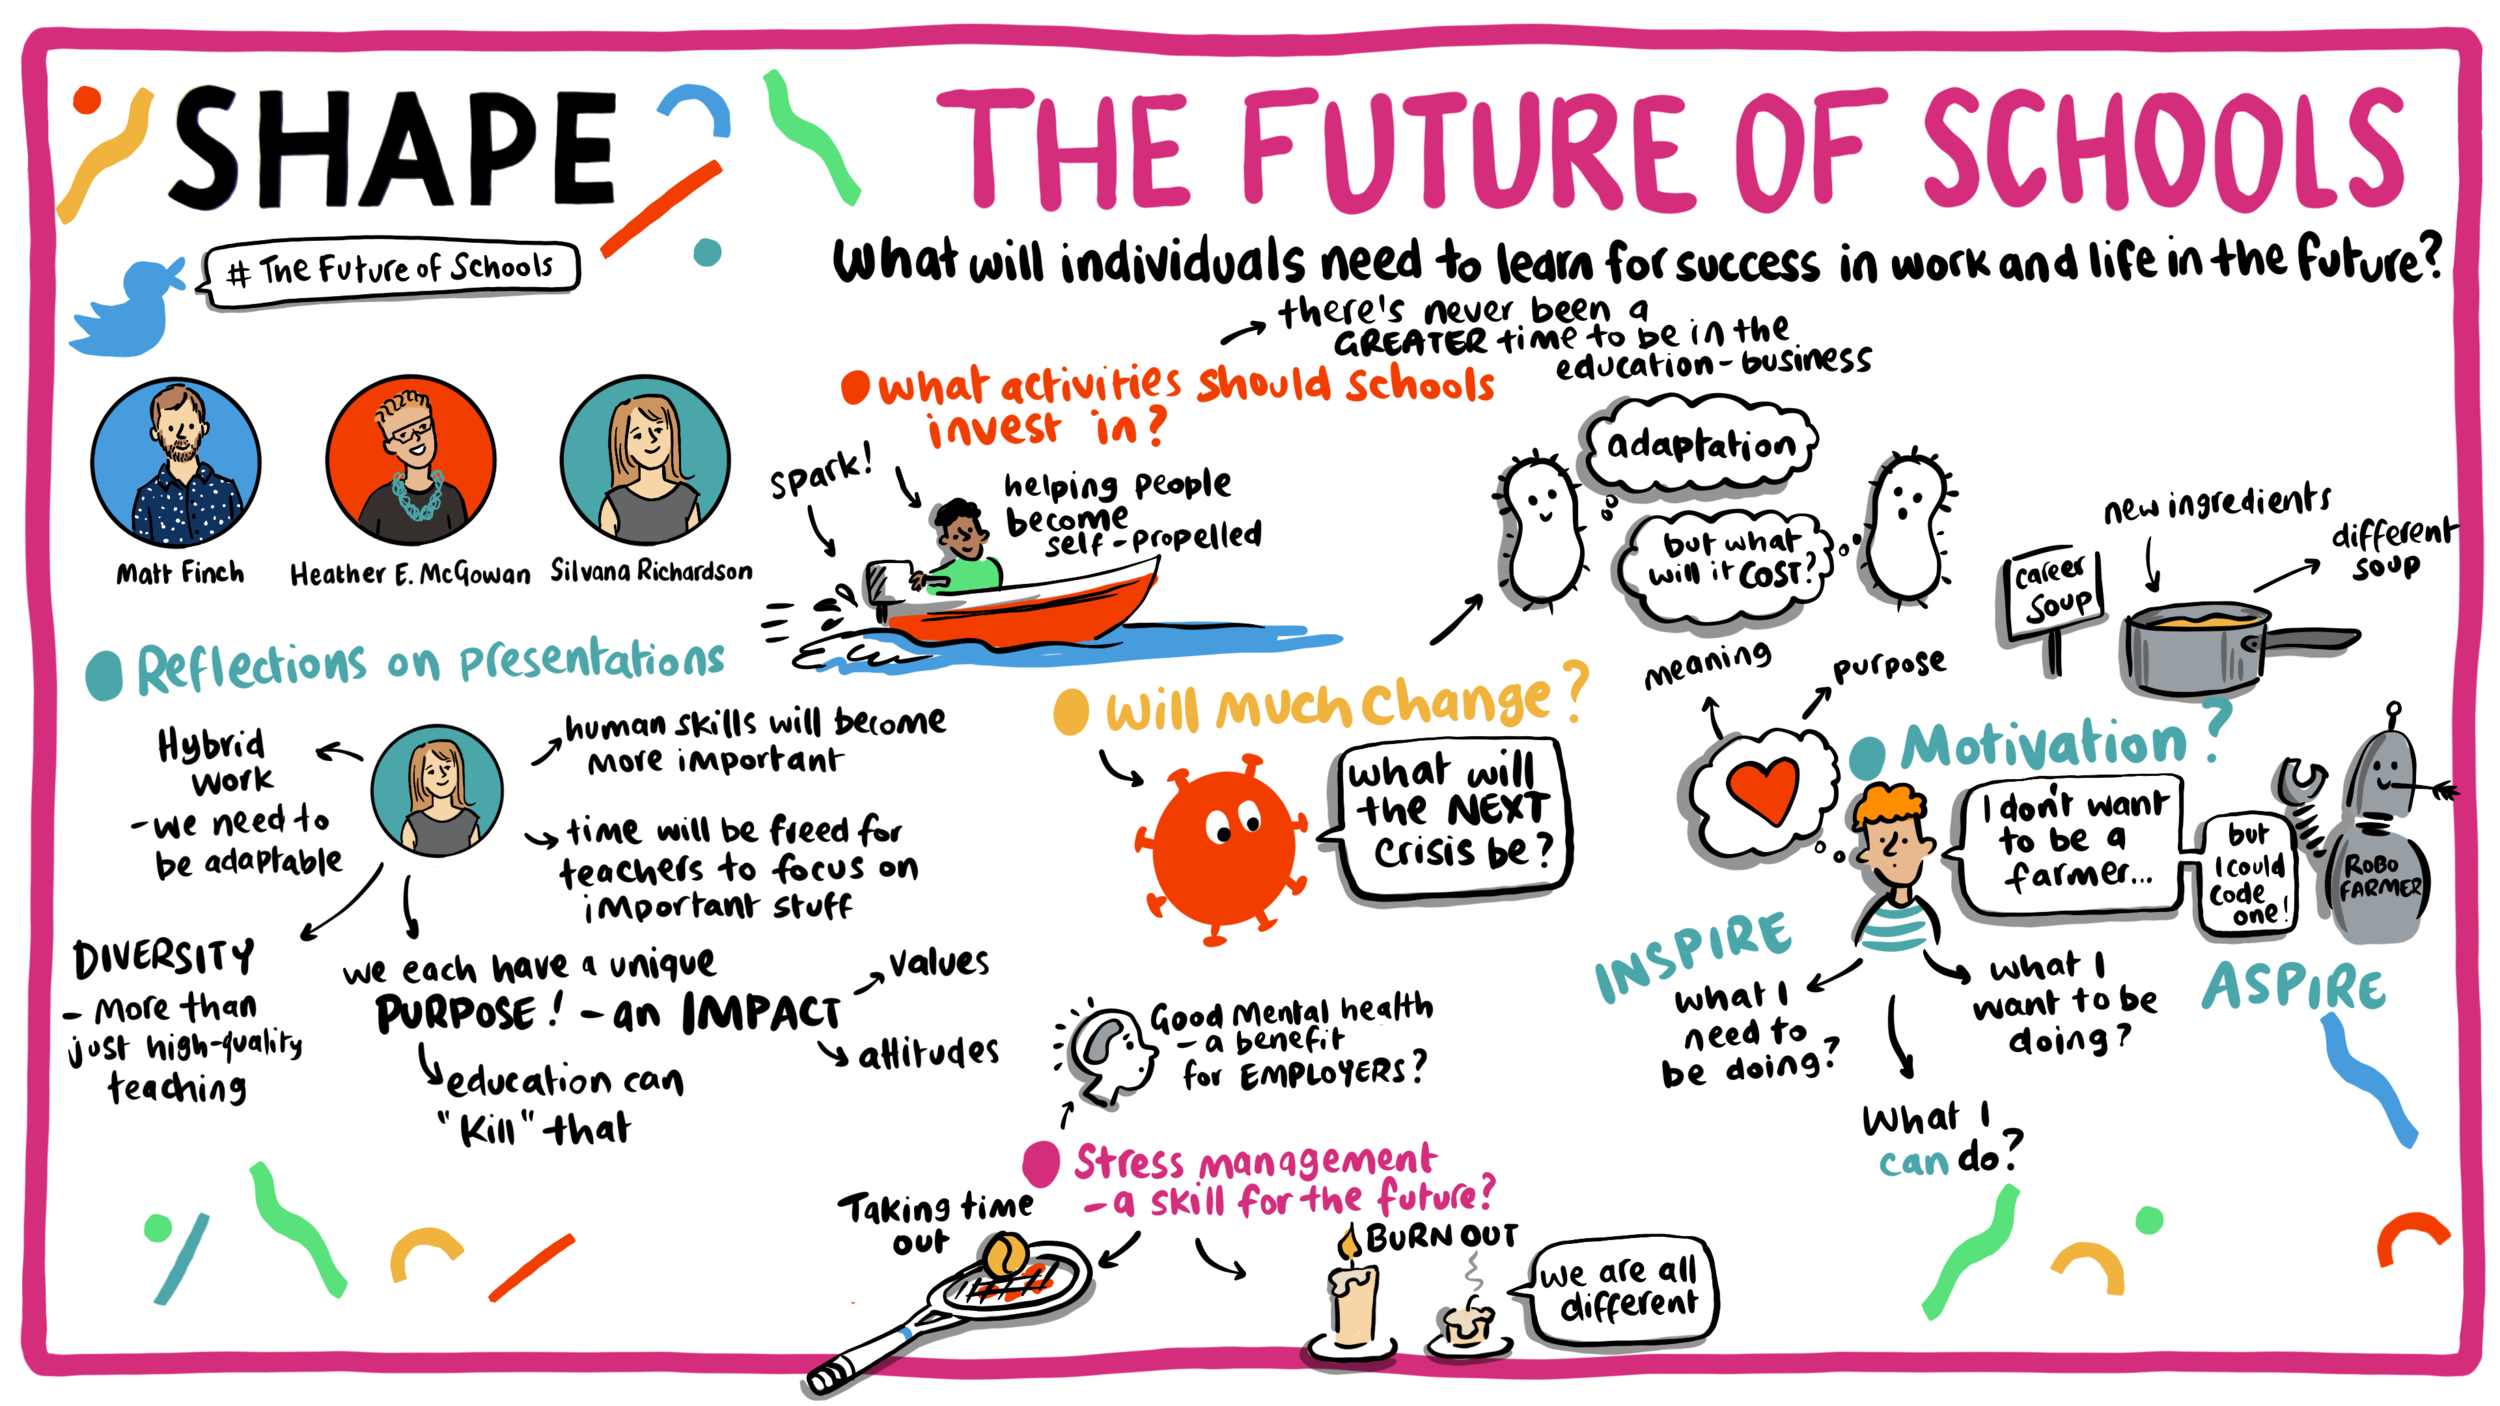 SHAPE
THE FUTURE OF SCHOOLS
# The Future of Schools
What will individuals need to learn for success in work and life in the future?
Matt Finch
Heather E. McGowan
Silvana Richardson
Reflections on presentations
Hybrid
work
- we need to
be adaptable
human skills will become
more important
time will be freed for
teachers to focus on
important stuff
DIVERSITY
- more than
just high-quality
teaching
we each have a unique
PURPOSE! - an IMPACT
values
attitudes
education can
"Kill" that
there's never been a
GREATER time to be in the
education-business
what activities should schools
invest in?
spark!
helping people
become
self-propelled
adaptation
but what
will it COST?
new ingredients
different
soup
career
soup
Will much change?
what will
the NEXT
Crisis be?
meaning
purpose
Motivation?
I don't want
to be a
farmer...
but
I could
code
one!
ROBO
FARMER
INSPIRE
what I
need to
be doing?
what I
want to be
doing?
ASPIRE
What I
can do?
Good Mental health
- a benefit
for EMPLOYERS?
Stress management
- a skill for the future?
Taking time
out
BURN OUT
we are all
different